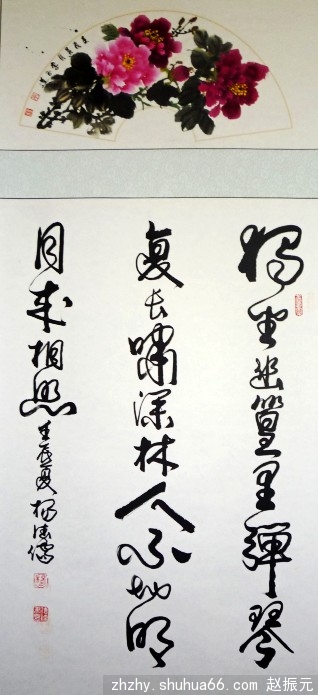 獨坐幽篁里彈琴
复长嘯深林人不知明
月来相照
壬辰夏 杨
zhzhy.shuhua66.com 赵振元